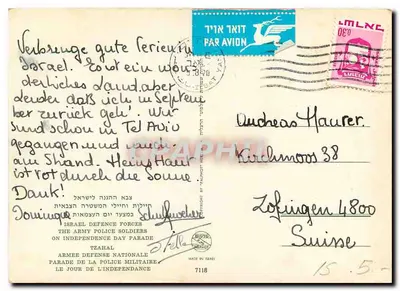 דואר אויר
PAR AVION
ישראל
0.30
Verbringe gute Ferien in
Israel. Es ist ein wun-
derliches Land, aber
leider daß ich im Septem
ber zurück geh! Wir
sind schon in Tel Aviv
gegangen und auch
am Strand. Heing Haut
ist rot durch die Sonne
Dank!
Dominique
Andreas Haurer
Kirchmoos 38
Zofingen 4800
Suisse
צבא ההגנה לישראל
חיילות וחיילי המשטרה הצבאית
במצעד יום העצמאות
ISRAEL DEFENCE FORCES
THE ARMY POLICE SOLDIERS
ON INDEPENDENCE DAY PARADE
TZAHAL
ARMEE DEFENSE NATIONALE
PARADE DE LA POLICE MILITAIRE
LE JOUR DE L'INDEPENDANCE
MADE IN ISRAEL
7118
15.5.-